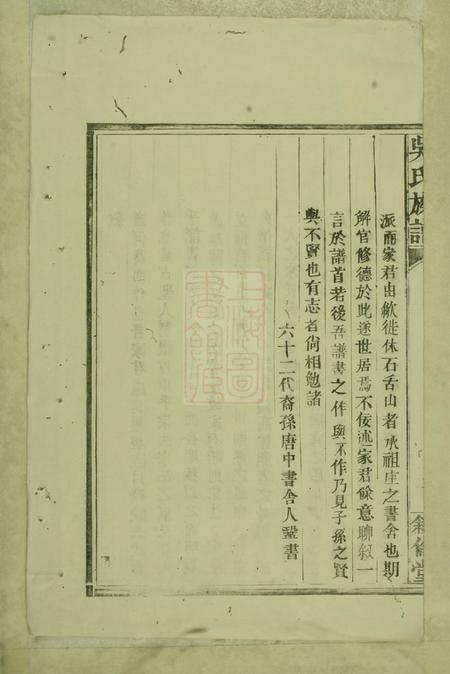 吳氏族譜
派而家君由歙徙休石舌山者承祖庄之書舍也期
解官修德於此遂世居焉不佞述家君餘意聊敘一
言於譜首若後吾譜書之作與不作乃見子孫之賢
與不賢也有志者尙相勉諸
六十二代裔孫唐中書舍人鞏書
上海圖書館藏